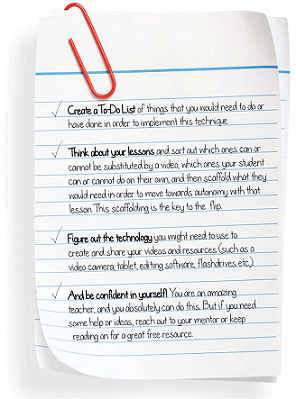 Create a To-Do List of things that you would need to do or
have done in order to implement this technique.
Think about your lessons and sort out which ones can or
cannot be substituted by a video, which ones your student
can or cannot do on their own, and then scaffold what they
would need in order to move towards autonomy with that
lesson. This scaffolding is the key to the flip.
Figure out the technology you might need to use to
create and share your videos and resources (such as a
video camera, tablet, editing software, flashdrives etc.).
And be confident in yourself! You are an amazing
teacher, and you absolutely can do this. But if you need
some help or ideas, reach out to your mentor or keep
reading on for a great free resource.